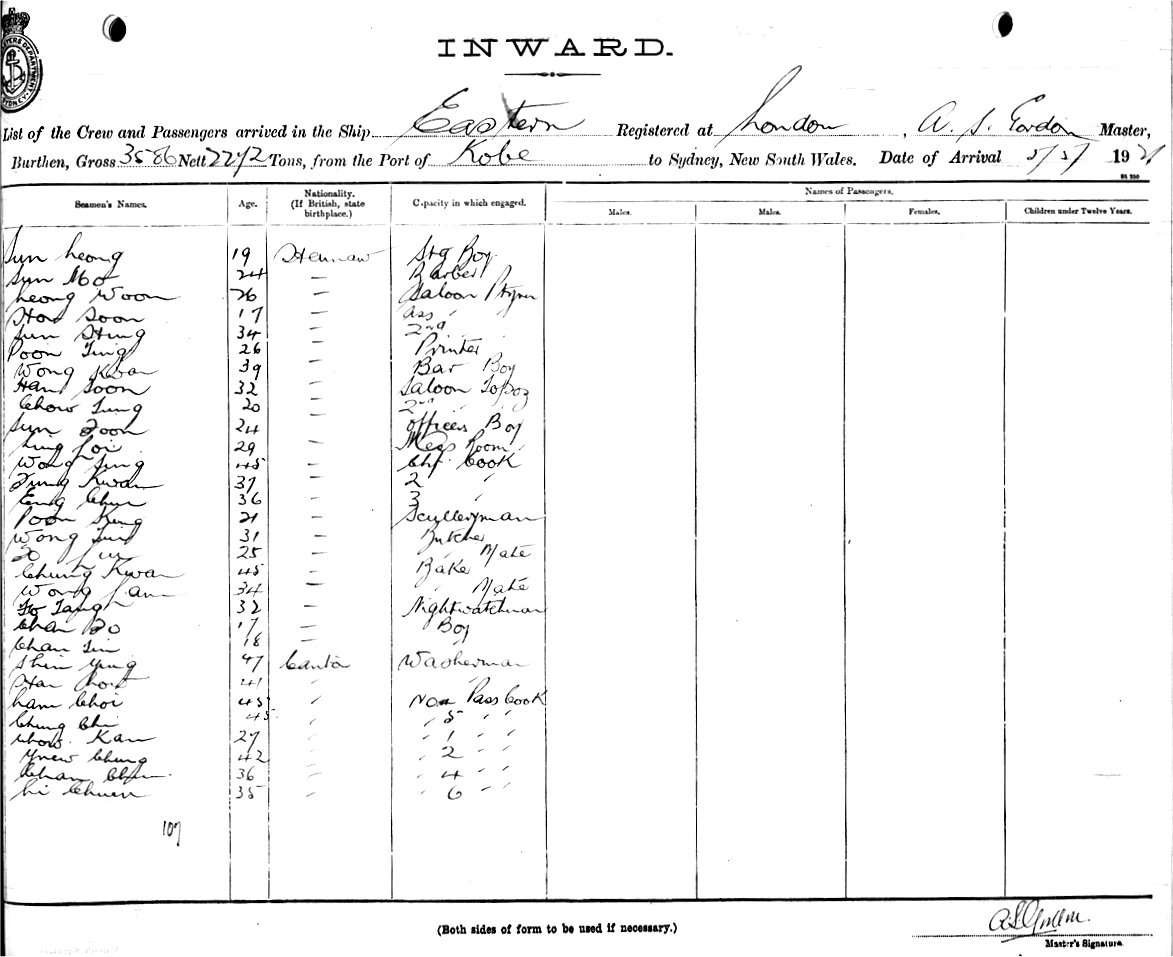 INWARD.
List of the Crew and Passengers arrived in the Ship Eastern Registered at London, A. S. Gordon Master,
Burthen, Gross 3586 Nett 2272 Tons, from the Port of Kobe to Sydney, New South Wales. Date of Arrival 5/5/ 1921
Seamen's Names. Age. Nationality. (If British, state birthplace.) Capacity in which engaged. Names of Passengers.
Males. Males. Females. Children under Twelve Years.
Sun Leong 19 Stg Boy
Sun Mo 24 — Barber
Leong Woon 26 — Saloon
How Soon 17 — Ass "
Sun Hing 34 — 2nd "
Poon Ting 26 — Printer
Wong Kwan 39 — Bar Boy
Ham Soon 32 — Saloon
Chow Tung 20 — 2nd "
Sun 24 — Officers Boy
Ling Loi 29 — Mess Room "
Wong Sing 45 — Chf Cook
Tung Kwan 37 — 2 "
Eng Chun 36 — 3 "
Poon King 21 — Sculleryman
Wong 31 — Butcher
25 — " Mate
Chung Kwan 45 — Baker
Wong Lam 34 — " Mate
32 — Nightwatchman
Chan 17 — Boy
Chan 18 —
Shin Yung 47 Canton Washerman
41 "
Lam Choi 45 " No Pass Cook
Chung Chi 45 " " 5 " "
Chow Kan 27 " " 1 " "
Ynew Chung 42 " " 2 " "
Chan Chun 36 " " 4 " "
Li Chuen 35 " " 6 " "
107
(Both sides of form to be used if necessary.)
Master's Signature.